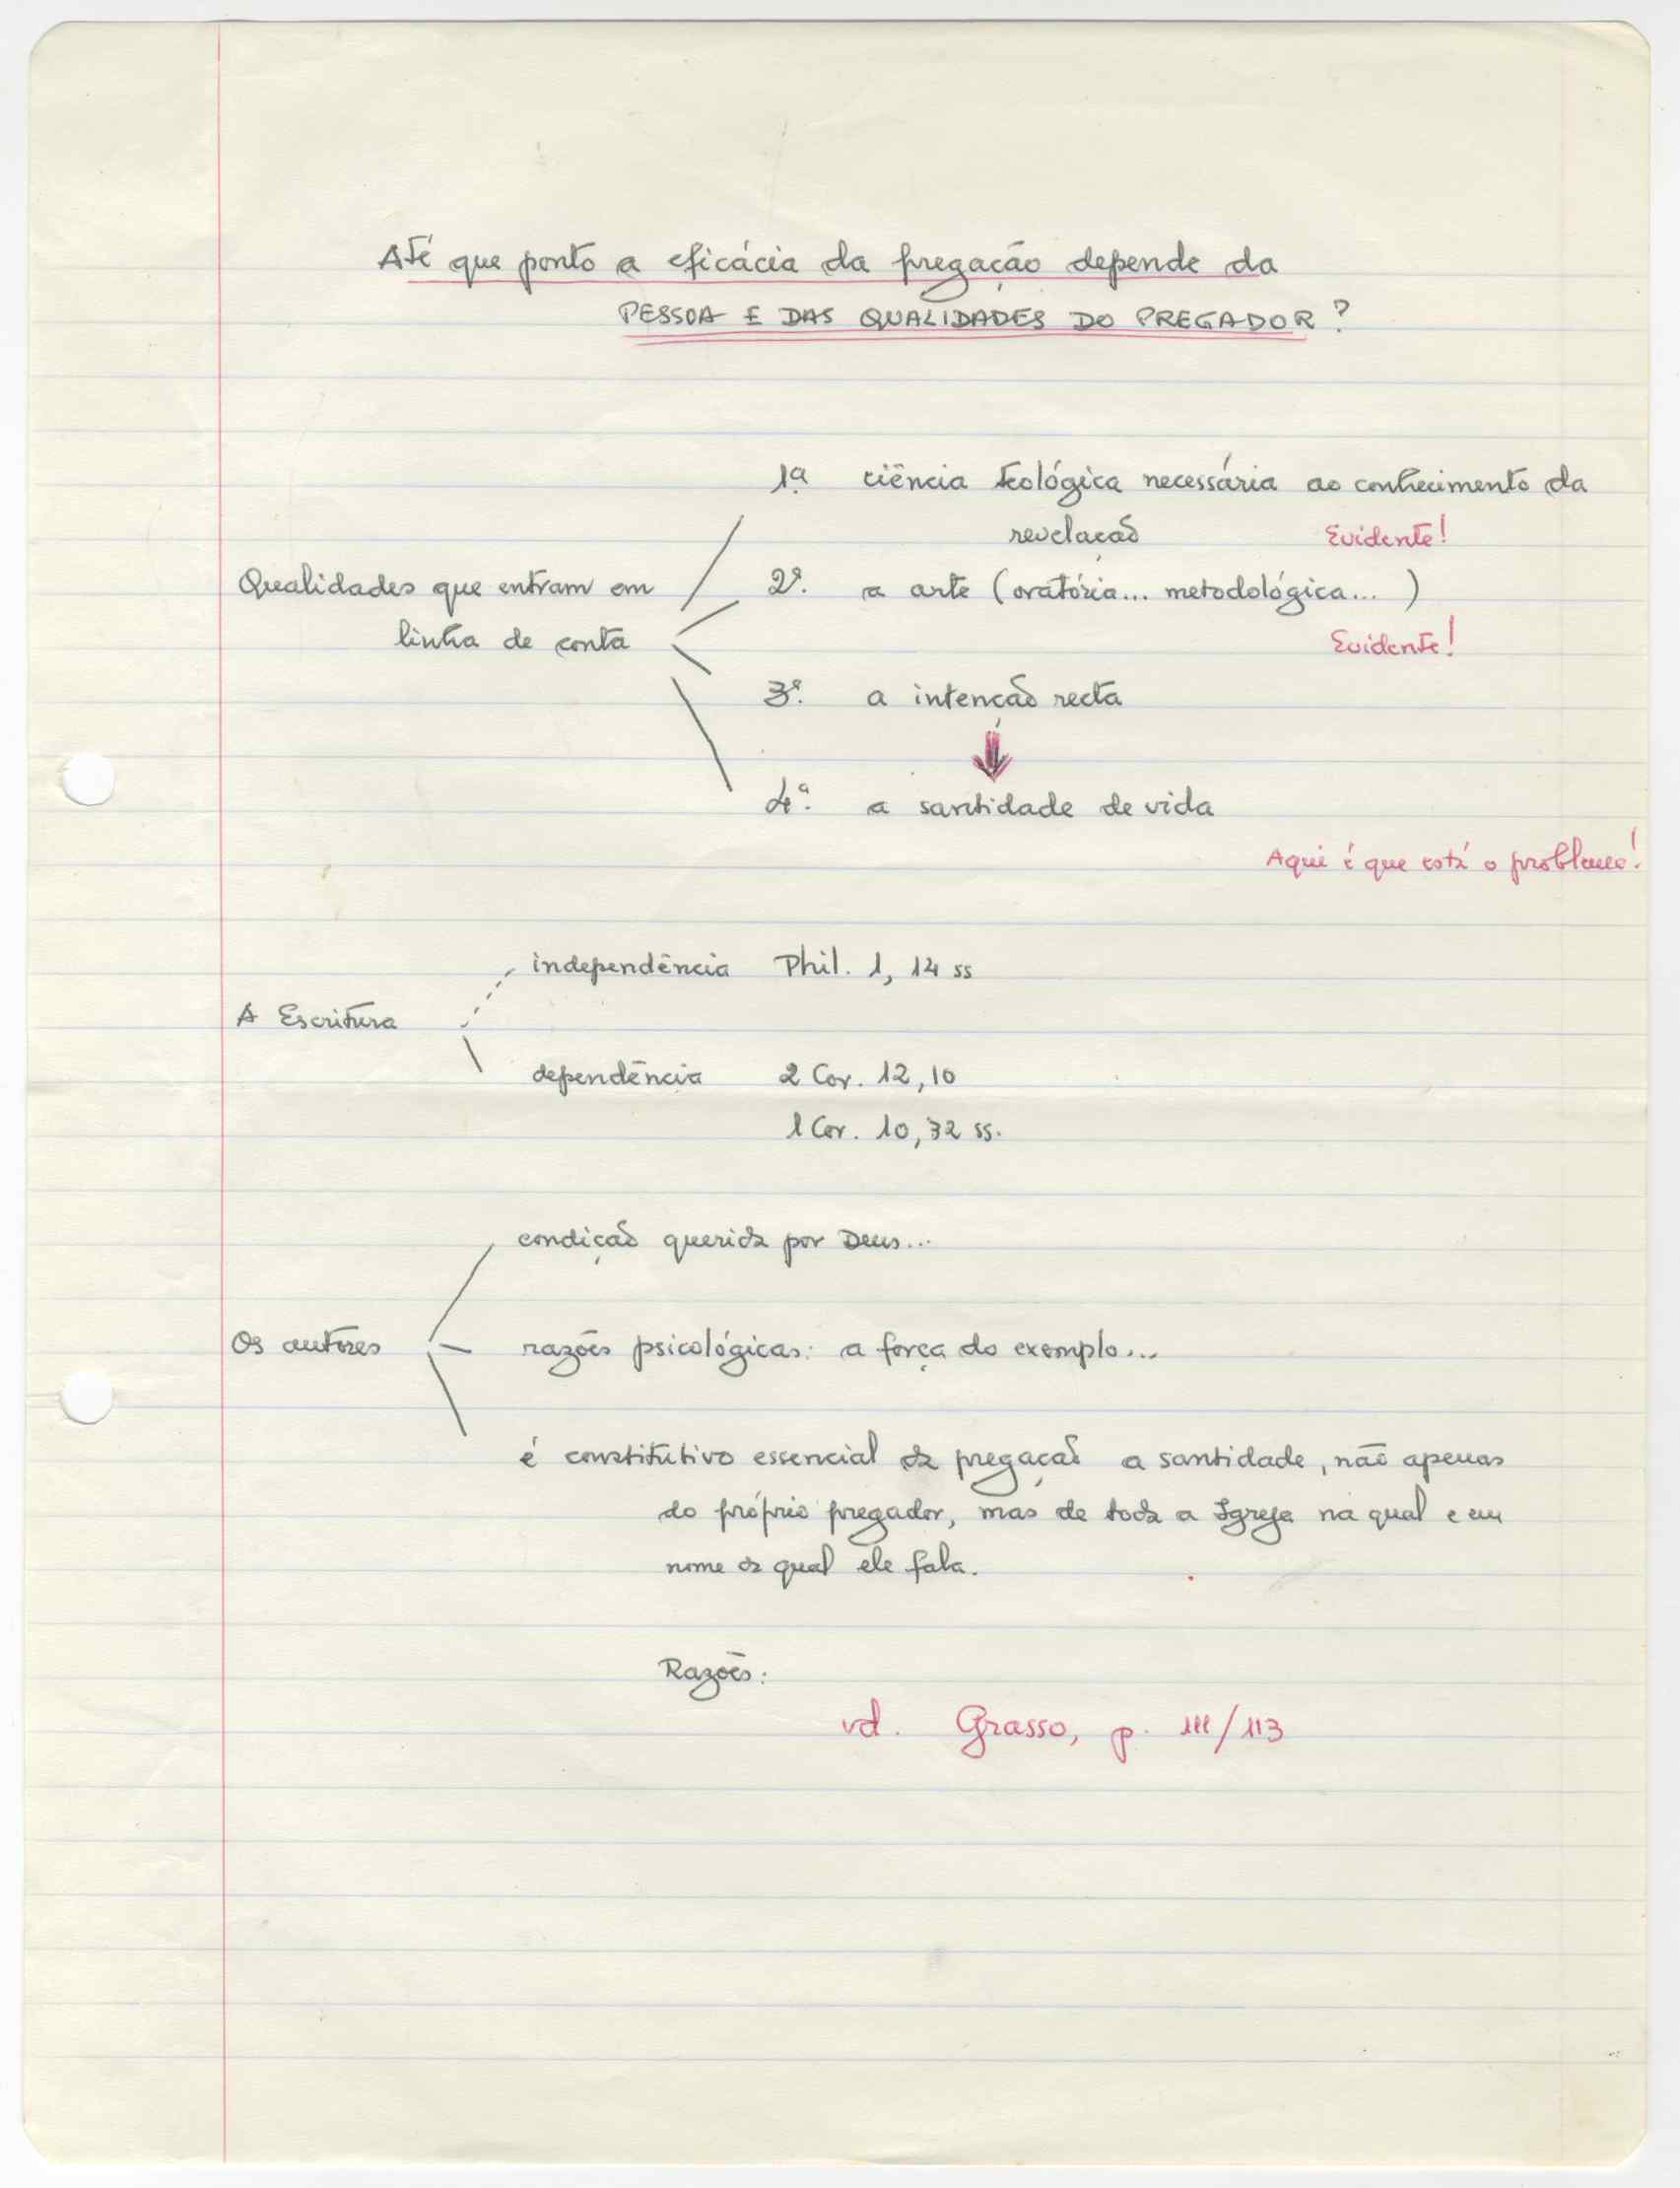 Até que ponto a eficácia da pregação depende da
PESSOA E DAS QUALIDADES DO PREGADOR?
1ª ciência teológica necessária ao conhecimento da
revelação Evidente!
Qualidades que entram em
linha de conta
2ª. a arte (oratória... metodológica...)
Evidente!
3ª. a intenção recta
4ª. a santidade de vida
Aqui é que está o problema!
A Escritura
independência Phil. 1, 14 ss
dependência 2 Cor. 12, 10
1 Cor. 10, 32 ss.
Os autores
condição querida por Deus...
razões psicológicas: a força do exemplo...
é constitutivo essencial da pregação a santidade, não apenas
do próprio pregador, mas de toda a Igreja na qual e em
nome da qual ele fala.
Razões:
vd. Grasso, p. 111/113